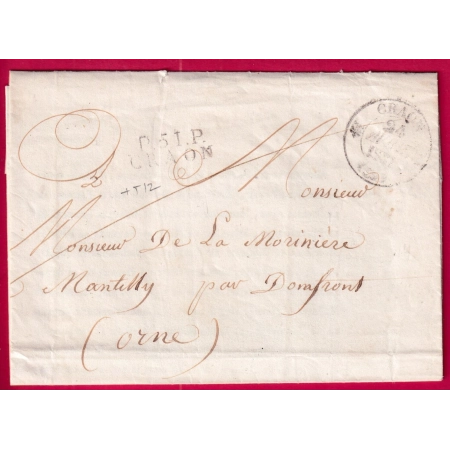 P.51.P.
CRAON
CRAON
24
Monsieur
Monsieur De La Moriniere
Mantilly par Domfront
(orne)